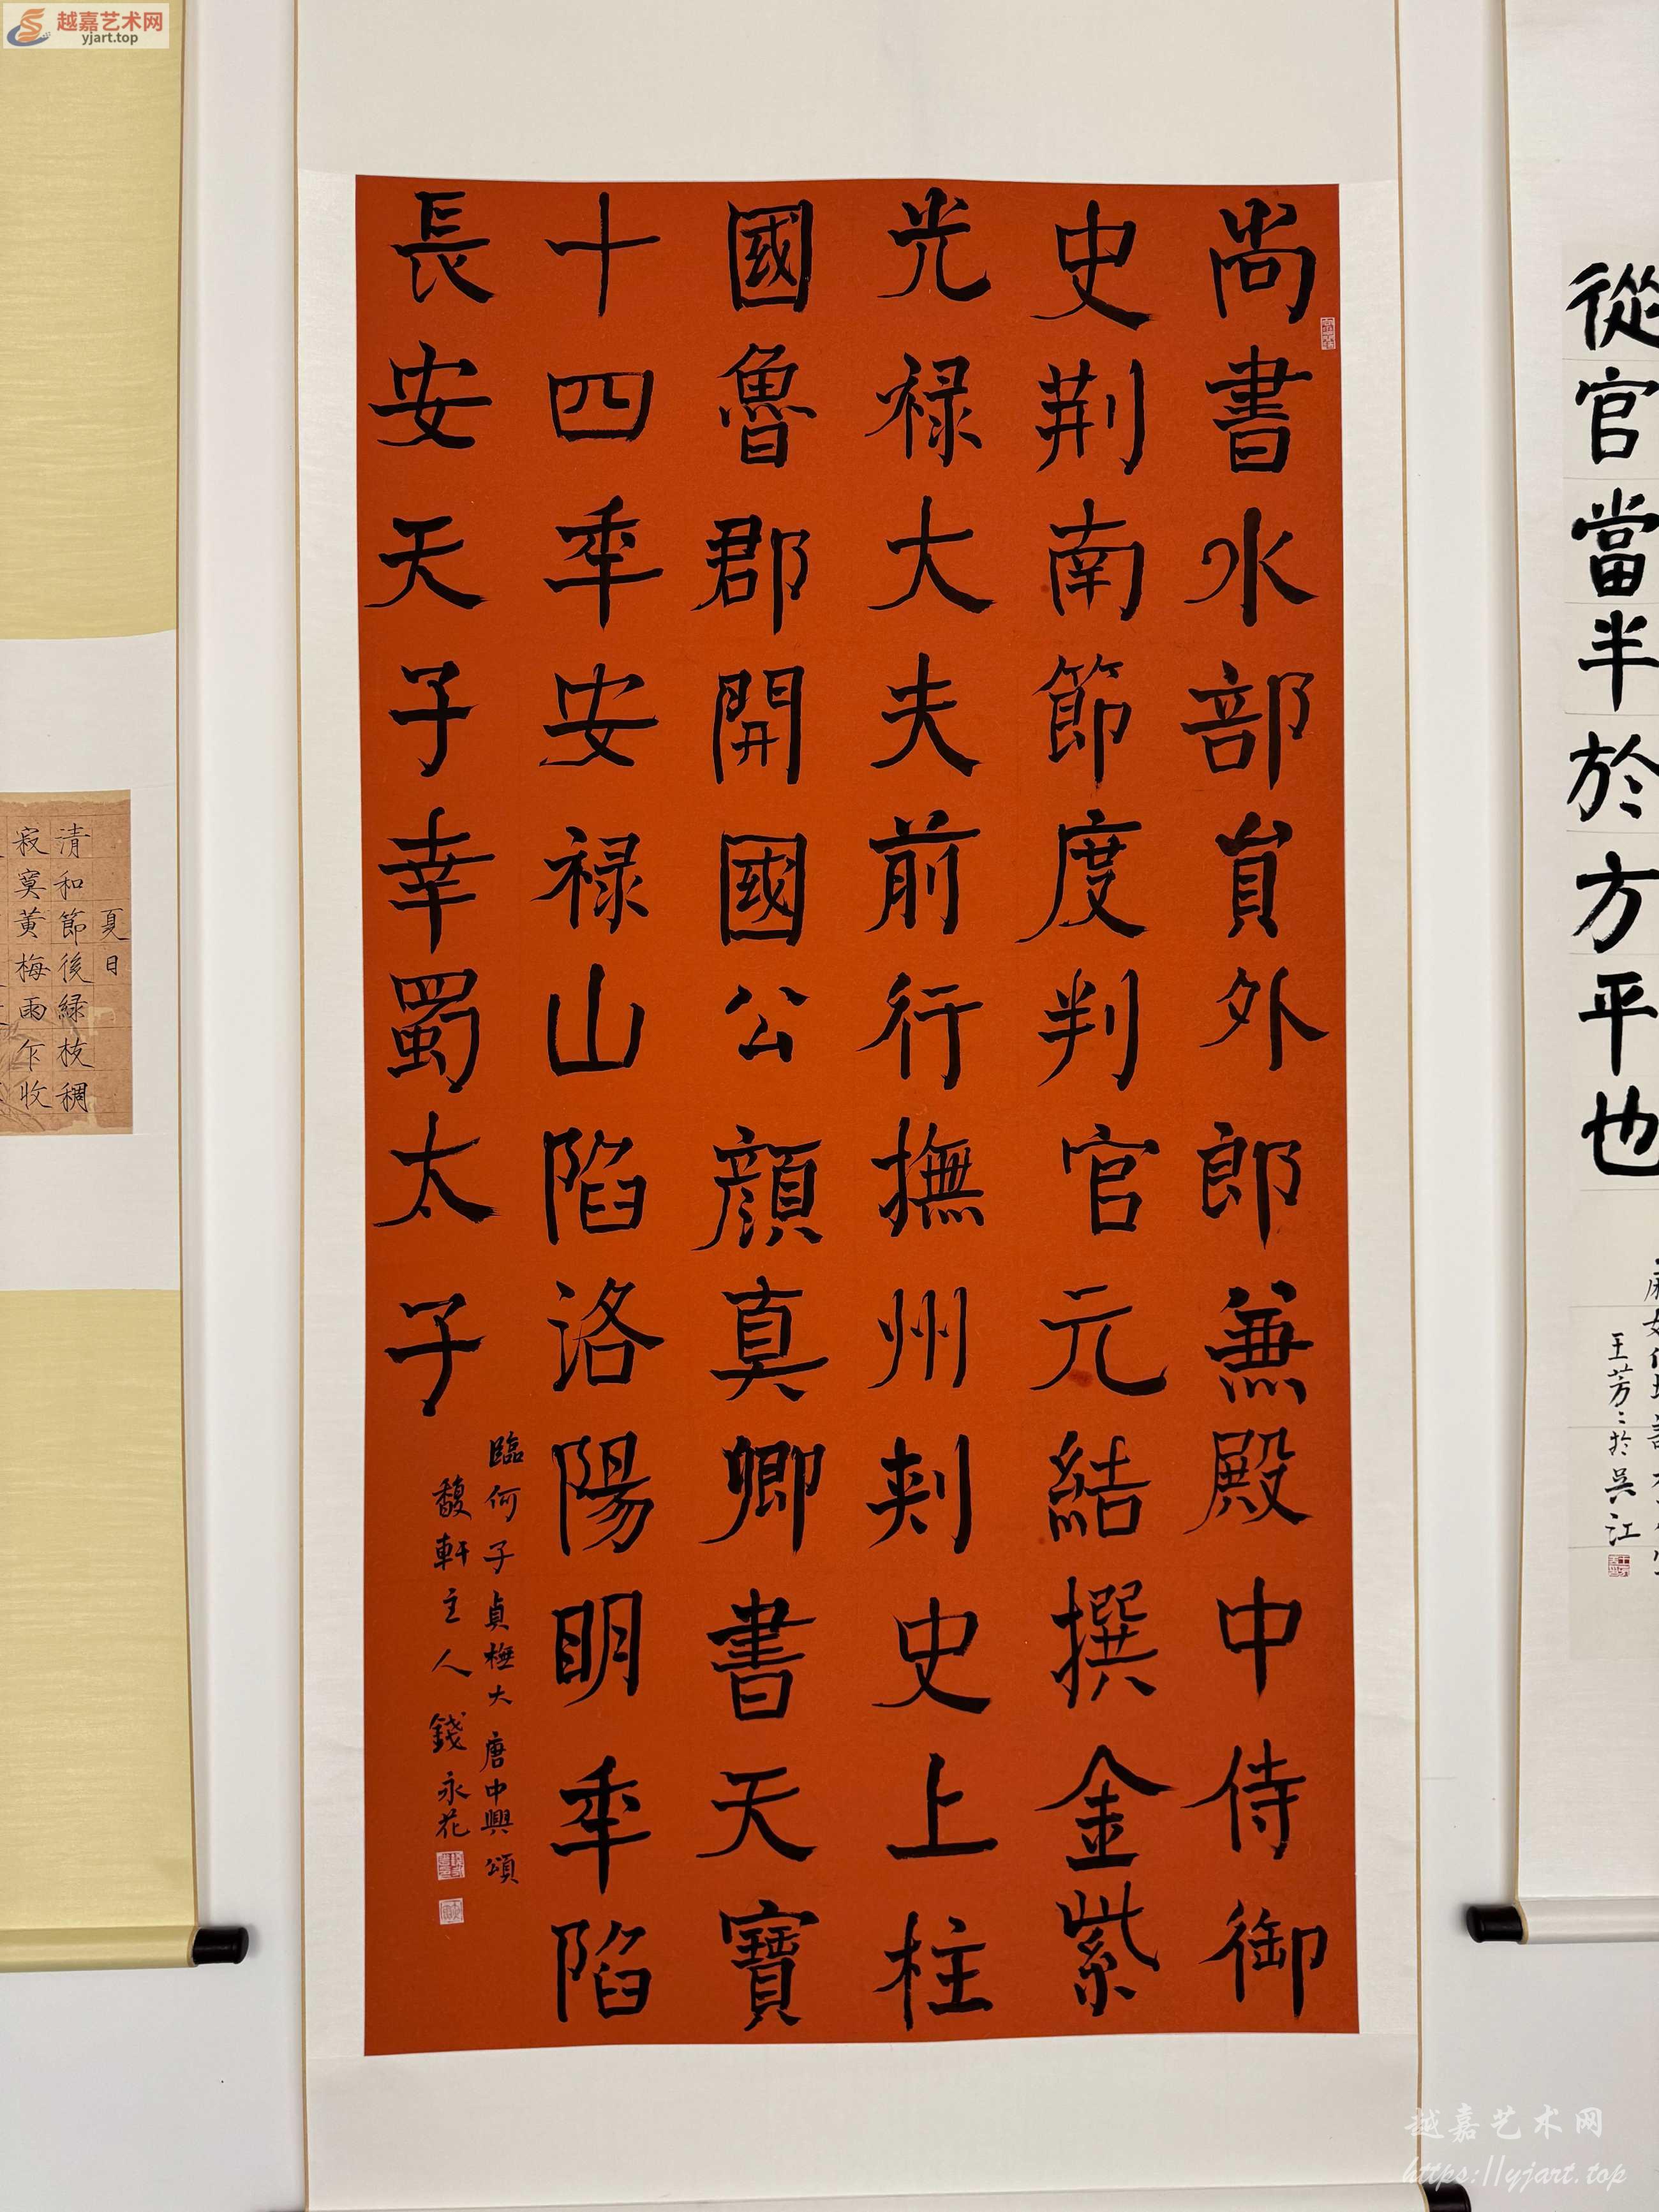 越嘉艺术网
yjart.top
尚書水部貟外郎兼殿中侍御
史荆南節度判官元結撰金紫
光禄大夫前行撫州刺史上柱
國魯郡開國公顔真卿書天寶
十四年安禄山陷洛陽明年陷
長安天子幸蜀太子
臨何子貞橅大唐中興頌
馥軒主人錢永花
從官當半於方平也
王芳芳於吳江
夏日
清和節後緑枝稠
寂寞黄梅雨乍收
越嘉艺术网
https://yjart.top